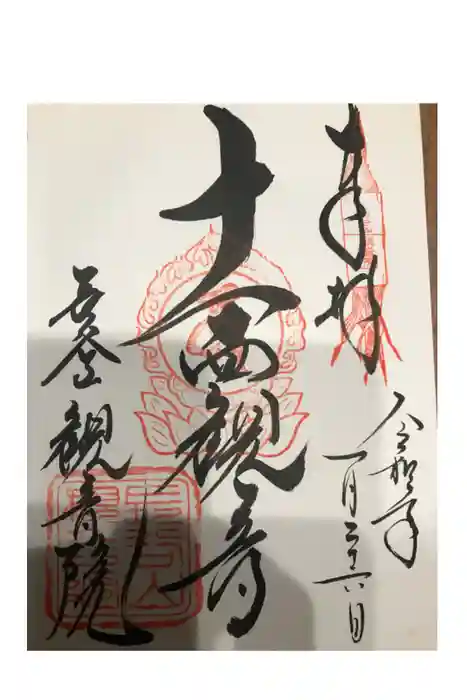 奉拝
令和二年
一月二十六日
十一面観音
観音院